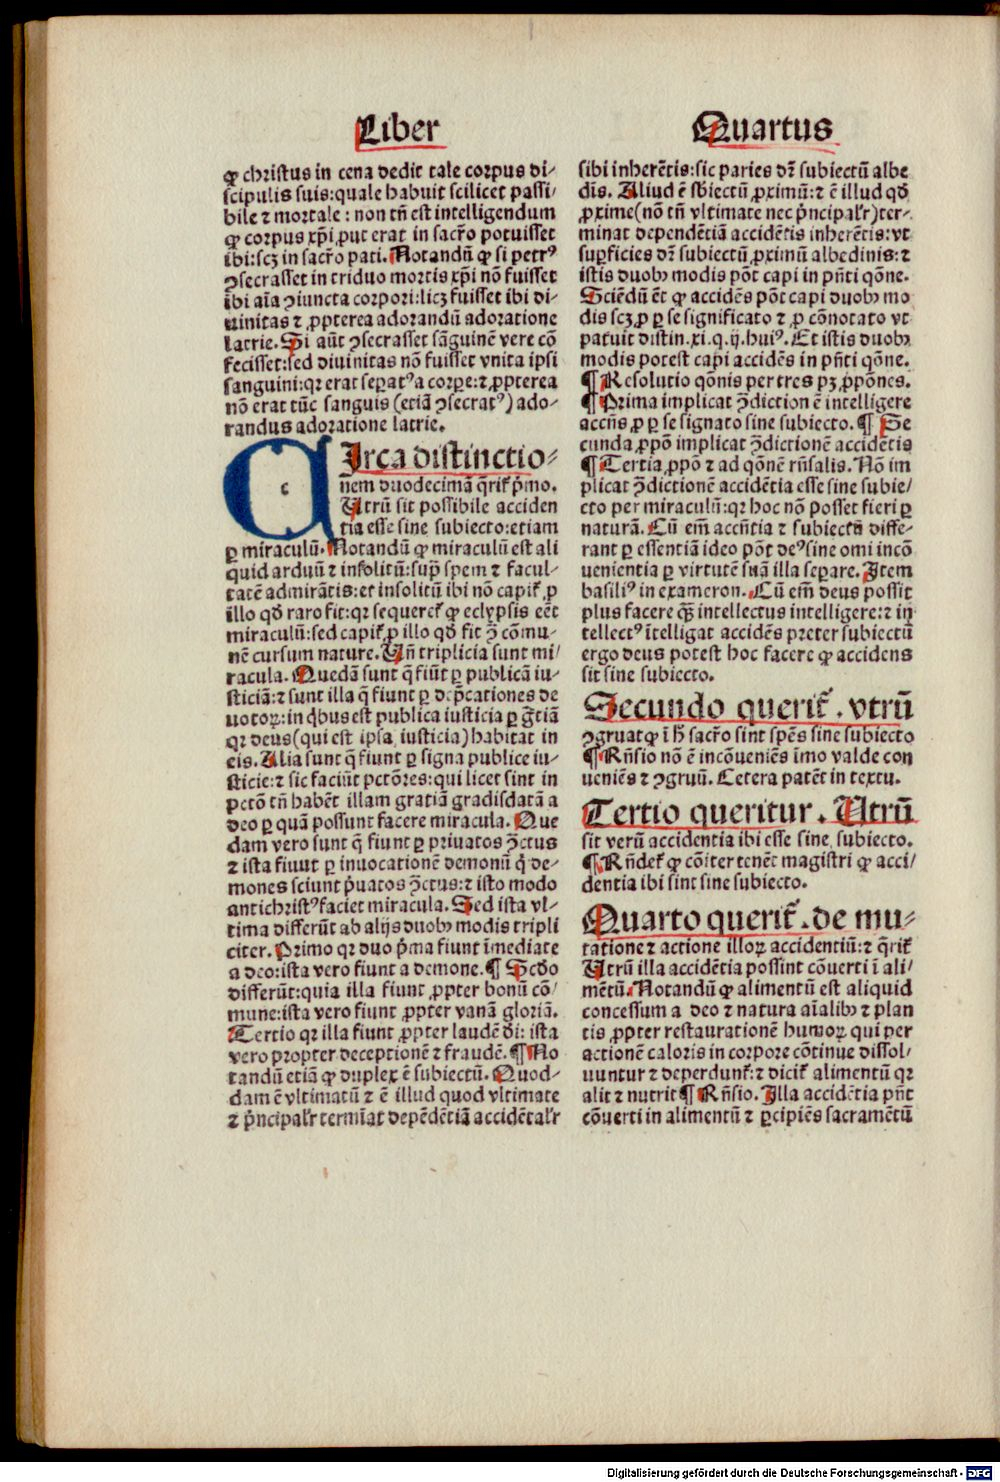 Liber
Quartus
ꝙ christus in cena dedit tale corpus di⸗
scipulis suis:quale habuit scilicet passi⸗
bile ⁊ mortale : non tñ est intelligendum
ꝙ corpus xp̄i ꝓut erat in sacr̄o potuisset
ibi:scꝫ in sacr̄o pati. Notandū ꝙ si petrꝰ
ↄsecrasset in triduo mortis xp̄i nō fuisset
ibi aīa ↄiuncta corpori:licꝫ fuisset ibi di⸗
uinitas ⁊ ꝓpterea adorandū adoratione
latrie. Si aūt ↄsecrasset sāguinē vere cō
fecisset:sed diuinitas nō fuisset vnita ipsi
sanguini:qꝛ erat sepatꝰ a corpe:⁊ ꝓpterea
nō erat tūc sanguis (etiā ↄsecratꝰ) ado⸗
randus adoratione latrie.
CIrca distinctio⸗
nem duodecimā q̄rit̄ p̄mo.
Utrū sit possibile acciden
tia esse sine subiecto:etiam
ꝑ miraculū. Notandū ꝙ miraculū est ali
quid arduū ⁊ insolitū:sup̄ spem ⁊ facul⸗
tatē admirātis:et insolitū ibi nō capit̄ ꝓ
illo qd̄ raro fit:qꝛ sequeret̄ ꝙ eclypsis eēt
miraculū:sed capit̄ ꝓ illo qd̄ fit ↄ̄ cōmu⸗
nē cursum nature. Uñ triplicia sunt mi⸗
racula. Quedā sunt q̄ fiūt ꝑ publicā iu⸗
sticiā:⁊ sunt illa q̄ fiunt ꝑ dep̄cationes de
uotoꝝ:in q̇bus est publica iusticia ꝑ gr̄tiā
qꝛ deus(qui est ipsa iusticia)habitat in
eis. Alia sunt q̄ fiunt ꝑ signa publice iu⸗
sticie:⁊ sic faciūt pctōres:qui licet sint in
pctō tñ habēt illam gratiā gradisdatā a
deo ꝑ quā possunt facere miracula. Que
dam vero sunt q̄ fiunt ꝑ priuatos ↄ̄ctus
⁊ ista fiuut ꝑ inuocationē demonū q̇ de⸗
mones sciunt p̄uatos ↄ̄ctus:⁊ isto modo
antichristꝰ faciet miracula. Sed ista vl⸗
tima differūt ab alijs duobꝫ modis tripli
citer. Primo qꝛ duo p̄ma fiunt īmediate
a deo:ista vero fiunt a demone. ¶ Scd̄o
differūt:quia illa fiunt ꝓpter bonū cō⸗
mune:ista vero fiunt ꝓpter vanā gloriā.
Tertio qꝛ illa fiunt ꝓpter laudē d̄i: ista
vero propter deceptionē ⁊ fraudē. ¶ No
tandū etiā ꝙ duplex ē subiectū. Quod⸗
dam ē vltimatū ⁊ ē illud quod vltimate
⁊ p̄ncipalr̄ termīat depēdētiā accidētalr̄
sibi inherētis:sic paries dr̄ subiectū albe
dīs. Aliud ē sbiectū ꝓximū:⁊ ē illud qd̄
ꝓxime(nō tñ vltimate nec p̄ncipalr̄)ter⸗
minat dependētiā accidētis inherētis:vt
supficies dr̄ subiectū ꝓximū albedinis:⁊
istis duobꝫ modis pōt capi in pn̄ti qōne.
Sciēdū ēt ꝙ accidēs pōt capi duobꝫ mo
dis scꝫ ꝓ ꝑ se significato ⁊ ꝓ cōnotato vt
patuit distin.xi.q.ij.huiꝰ. Et istis duobꝫ
modis potest capi accidēs in pn̄ti qōne.
¶ Resolutio qōnis per tres pꝫ ꝓpōnes.
¶ Prima implicat ↄ̄diction ē intelligere
accn̄s ꝓ ꝑ se signato sine subiecto. ¶ Se
cunda ꝓpō implicat ↄ̄dictionē accidētis
¶ Tertia ꝓpō ⁊ ad qōnē rn̄salis. Nō im
plicat ↄ̄dictionē accidētia esse sine subie⸗
cto per miraculū:qꝛ hoc nō posset fieri ꝑ
naturā. Cū em̄ accn̄tia ⁊ subiectū diffe⸗
rant ꝑ essentiā ideo pōt deꝰ sine omi incō
uenientia ꝑ virtutē suā illa separe. Item
basiliꝰ in exameron. Cū em̄ deus possit
plus facere qꝫ̄ intellectus intelligere:⁊ in
tellectꝰ ītelligat accidēs preter subiectū
ergo deus potest hoc facere ꝙ accidens
sit sine subiecto.
Secundo querit̄ . vtrū
ↄgruat ꝙ ī h̄ sacr̄o sint spēs sine subiecto
¶ Rn̄sio nō ē incōueniēs īmo valde con
ueniēs ⁊ ↄgruū. Cetera patēt in textu.
Tertio queritur . Utrū
sit verū accidentia ibi esse sine subiecto.
¶ Rn̄det̄ ꝙ cōiter tenēt magistri ꝙ acci⸗
dentia ibi sint sine subiecto.
Quarto querit̄ . de mu⸗
tatione ⁊ actione illoꝝ accidentiū:⁊ q̄rit̄
Utrū illa accidētia possint cōuerti ī ali⸗
mētū. Notandū ꝙ alimentū est aliquid
concessum a deo ⁊ natura aīalibꝫ ⁊ plan
tis ꝓpter restaurationē humoꝝ qui per
actionē caloris in corpore cōtinue dissol⸗
uuntur ⁊ deperdunt̄:⁊ dicit̄ alimentū qꝛ
alit ⁊ nutrit ¶ Rn̄sio. Illa accidētia pn̄t
cōuerti in alimentū ⁊ ꝑcipiēs sacramētū
Digitalisierung gefördert durch die Deutsche Forschungsgemeinschaft - DFG